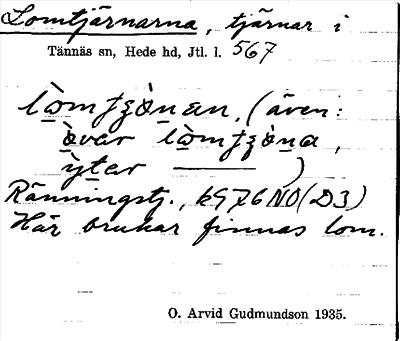 Lomtjärnarna, tjärnar i
Tännäs sn, Hede hd, Jtl. l. 567
lò̲mʈʂò̲nan, (även:
ò̲var lò̲mʈʂò̲na,
ỳtar ——— )
Ränningstj., k976NO(D3)
Här brukar finnas lom.
O. Arvid Gudmundson 1935.